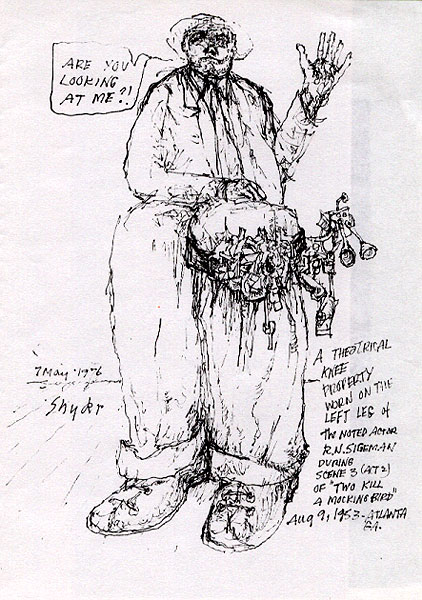 ARE YOU
LOOKING
AT ME?!
7 May 1976
Snyder
A THEATRICAL
KNEE
PROPERTY
WORN ON THE
LEFT LEG of
THE NOTED ACTOR
R.N. SIGEMAN
DURING
SCENE 3 (ACT 2)
OF "TWO KILL
A MOCKING BIRD"
Aug 9, 1953 - ATLANTA
GA.